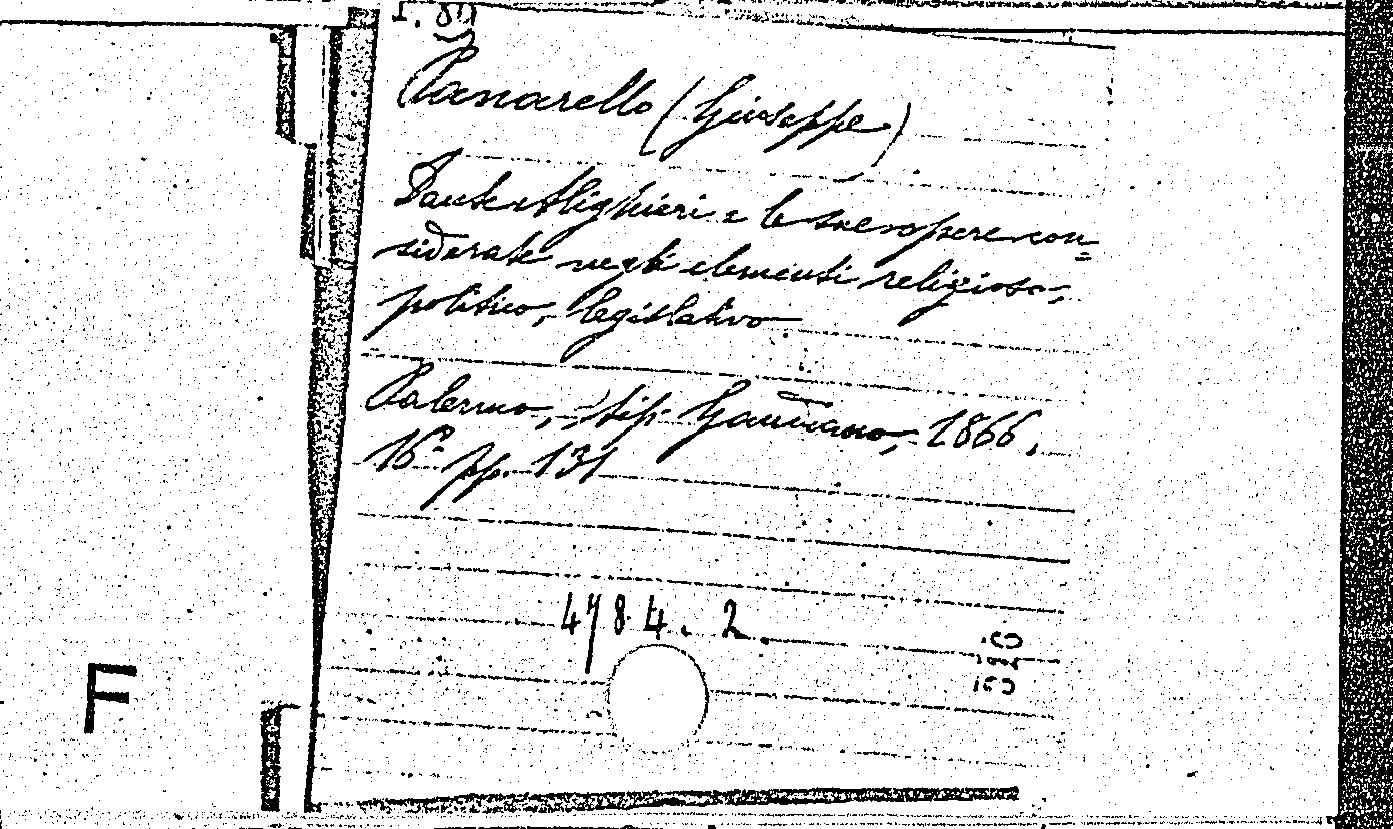 Panarello (Giuseppe)
Dante Alighieri e le sue opere con=
siderate negli elementi religioso,
politico, legislativo
Palermo, tip. Gaudiano, 1866.
16° pp. 131
4784. 2.
F